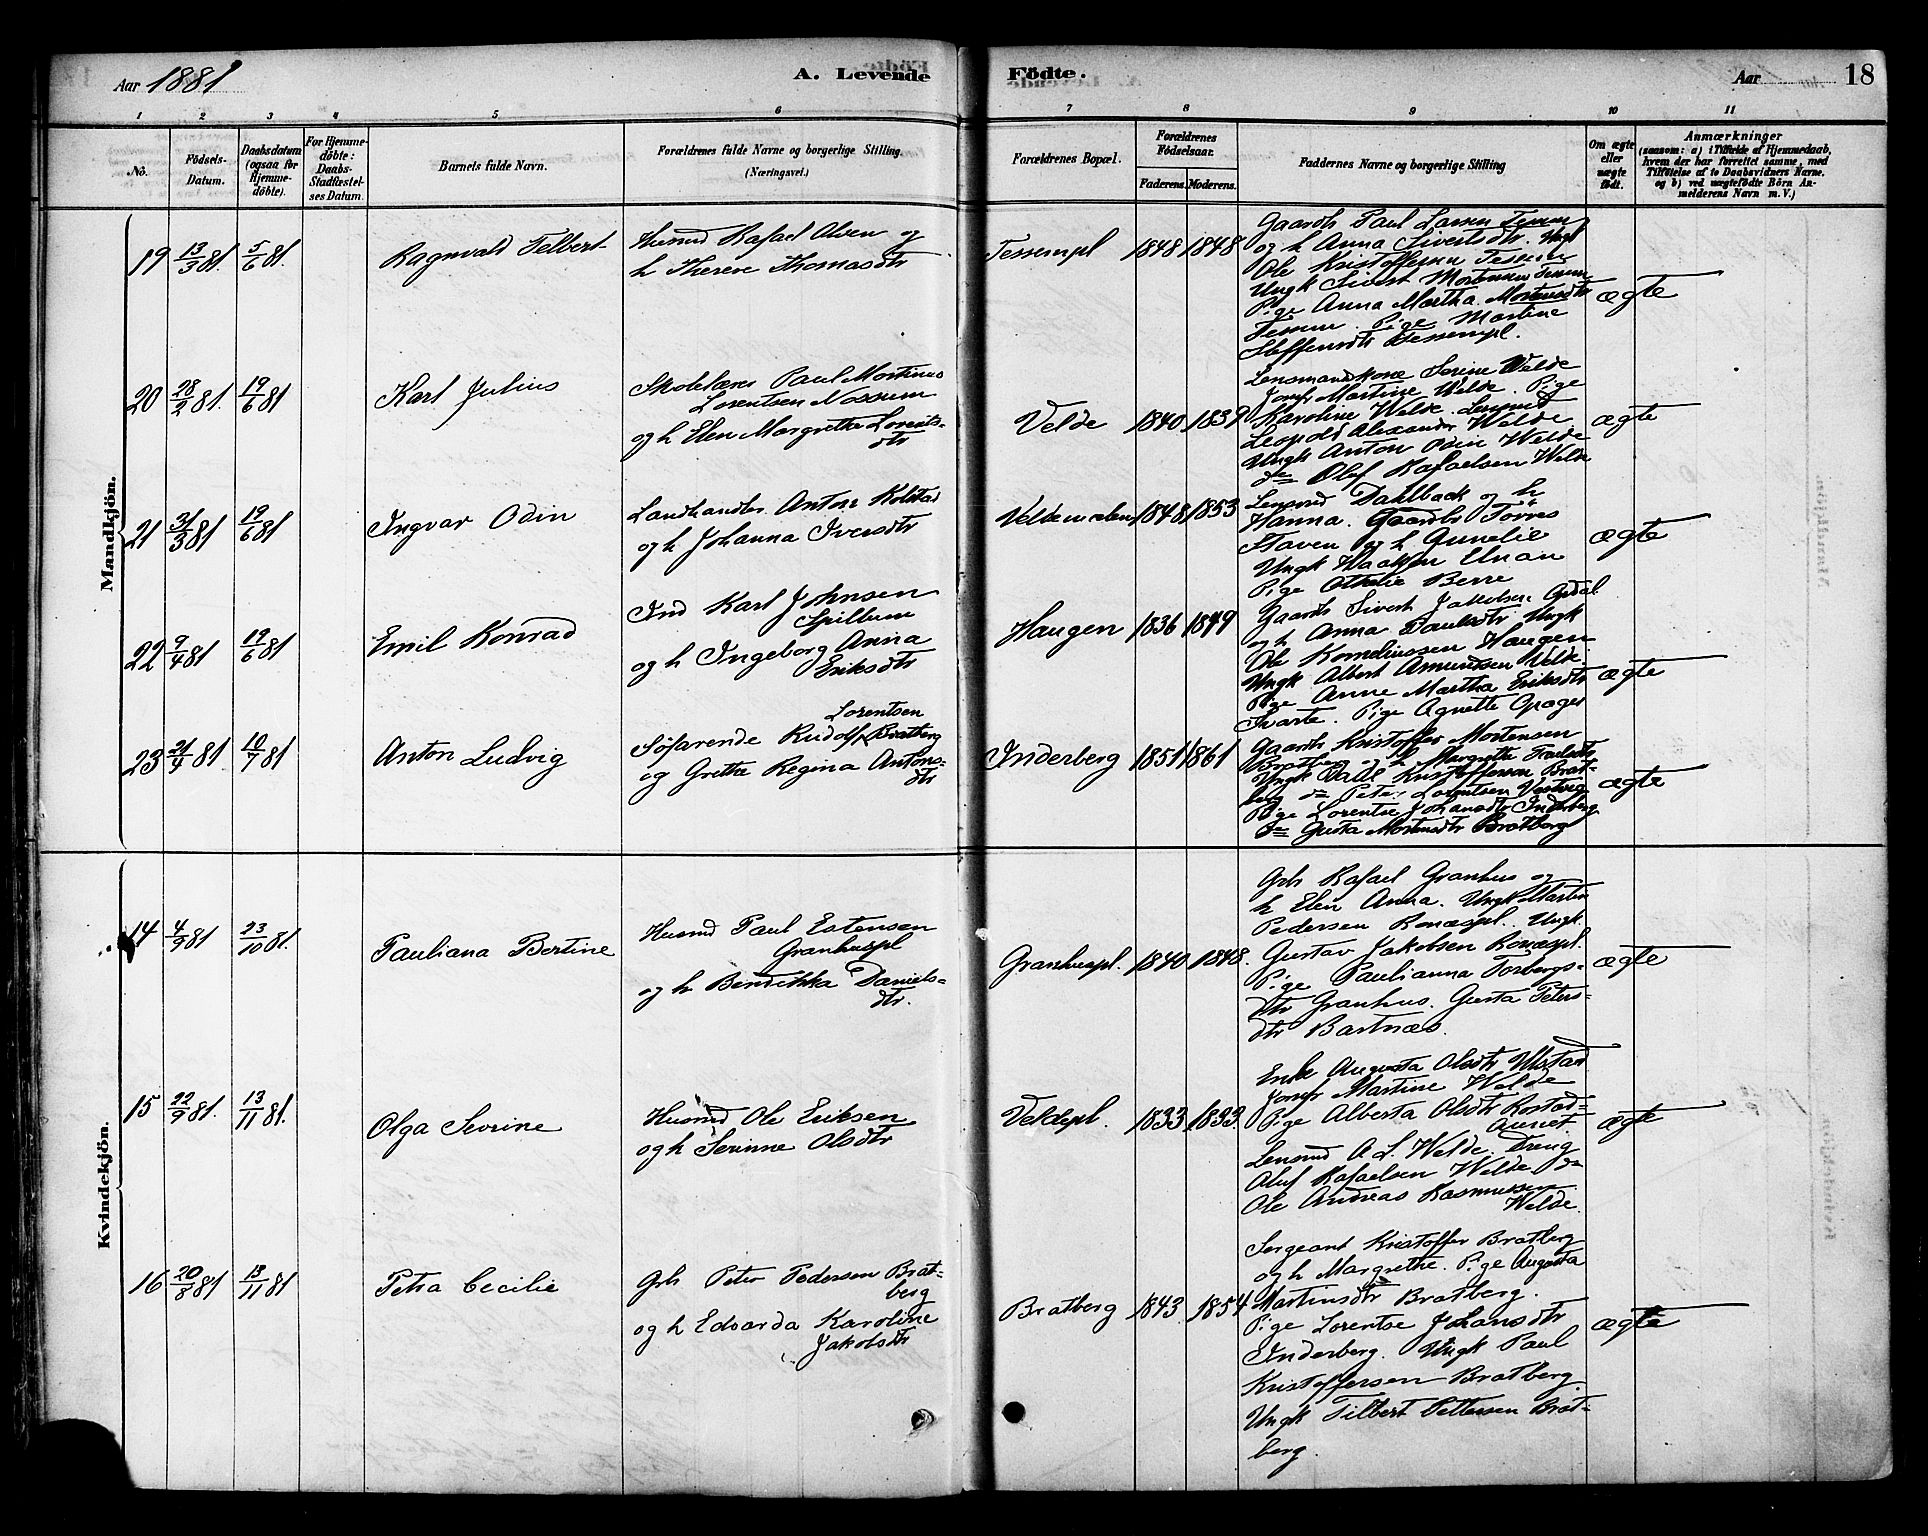 Aar 1881
A. Levende
Födte.
Aar
18
1 2 3 4 5 6 7 8 9 10 11
No.
Födsels-
Datum.
Daabsdatum
(ogsaa for
Hjemme-
döbte).
For Hjemme-
döbte:
Daabs-
Stadfæstel-
ses Datum.
Barnets fulde Navn.
Forældrenes fulde Navne og borgerlige Stilling.
(Næringsvei.)
Forældrenes Bopæl.
Forældrenes
Födselsaar.
Faderens. Moderens.
Faddernes Navne og borgerlige Stilling
Om ægte
eller
uægte
födt.
Anmærkninger
(saasom: a) i Tilfælde af Hjemmedaab,
hvem der har forrettet samme, med
Tilföielse af to Daabsvidners Navne,
og b) ved uægtefödte Börn An-
melderens Navn m. V.)
Mandkjön.
19 13/3 81 5/6 81.
Ragnvald Telbert
Husmd Rafael Olsen og
h Therese Thomasdtr
Tessempl 1848 1848
Gaardb Paul Larsen Tessem
og h Anna Sivertsdtr. Ungk
Ole Kristoffersen Tessem
Ungk Sivert Mortensen Tessem
Pige Anna Martha Mortensdtr
Tessem. Pige Martine
Steffensdtr Tessempl.
ægte
20 28/2 81. 19/6 81
Karl Julius
Skolelærer Paul Martinus
Lorentsen Nossum
og h Elen Margrethe Lorents-
dtr
Velde 1840 1839
Lensmandkone Serine Welde
Jomfr Martine Welde. Pige
Karoline Welde. Lensmd
Leopold Alexander Welde
Ungk Anton Odin Welde
do Oluf Rafaelsen Welde
ægte
21 31/3 81 19/6 81
Ingvar Odin
Landhandler Anton Kolstad
og h Johanna Iversdtr
1848 1853
Lensmd Dahlback og h
Hanna. Gaardb Torres
Staven og h Gunelie
Ungk Haaken Unan
Pige Othelie Berre
ægte
22 9/4 81 19/6 81
Emil Konrad
Ind Karl Johnsen
Spillum
og h Ingeborg Anna
Eriksdtr
Haugen 1836 1849
Gaardb Sivert Jakobsen Opdal
og h Anna Paulsdtr Ungk
Ole Korneliussen Haugen
Ungk Albert Amundsen Velde.
Pige Anne Martha Eriksdtr
Svarte. Pige Agnette Opager
ægte
23 21/4 81 10/7 81
Anton Ludvig
Lorentsen
Söfarende Rudolf Bratberg
og Grethe Regina Antons-
dtr
Inderberg 1851 1861
Gaardb Kristoffer Mortensen
Bratberg og h Margrethe
Ungk Paul Kristoffersen Brat-
berg do Peter Lorentsen
Pige Lorentse Johansdtr Inderberg
do Gusta Mortensdtr Bratberg
ægte
Kvindekjön.
14 4/9 81 23/10 81.
Pauliana Bertine
Husmd Paul Estensen
Granhuspl
og h Bendikka Daniels-
dtr.
Granhuspl. 1840 1848.
Grb Rafael Granhus og
h Elen Anna. Ungk Martin
Pedersen Ronæspl. Ungk.
Gustav Jakobsen Ronæspl.
Pige Paulianna Torbergs-
dtr Granhus. Gusta Peters-
dtr Bartnæs.
ægte
15 22/9 81. 13/11 81.
Olga Sevrine
Husmd Ole Eriksen
og h Serinne Olsdtr
Veldepl. 1833 1833.
Enke Augusta Olsdtr Ulstad
Jomfr Martine Welde
Pige Alberta Olsdtr Rostad-
aunet
Lensmd A. L. Welde. Dreng
Oluf Rafaelsen Welde do
Ole Andreas Rasmussen
Welde.
ægte
16 20/8 81 13/11 81
Petra Cecilie
Grb Peter Pedersen Brat-
berg
og h Edvarda Karoline
Jakobsdtr
Bratberg 1843. 1854
Sergeant Kristoffer Bratberg
og h Margrethe. Pige Augusta
Martinsdtr Bratberg.
Pige Lorentse Johansdtr
Inderberg. Ungk Paul
Kristoffersen Bratberg
Ungk Tilbert Pettersen Brat-
berg.
ægte